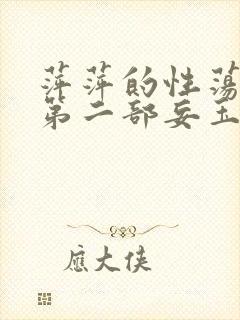 萍萍的性荡
第二部妄玉
應大侠